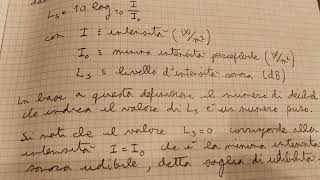 L_s = 10 log₁₀ I/I₀
con I ≡ intensità (W/m²)
I₀ ≡ minima intensità percepibile (W/m²)
L_s ≡ livello d'intensità sonora (dB)
In base a questa definizione il numero di decibel
che indica il valore di L_s è un numero puro.
Si noti che il valore L_s = 0 corrisponde alla
intensità I = I₀ che è la minima intensità
sonora udibile, detta soglia di udibilità.